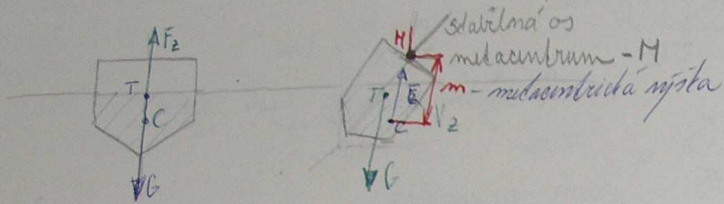 F_z
T
C
G
stabilná os
M
metacentrum - M
T
m - metacentrická výška
C
V_z
G